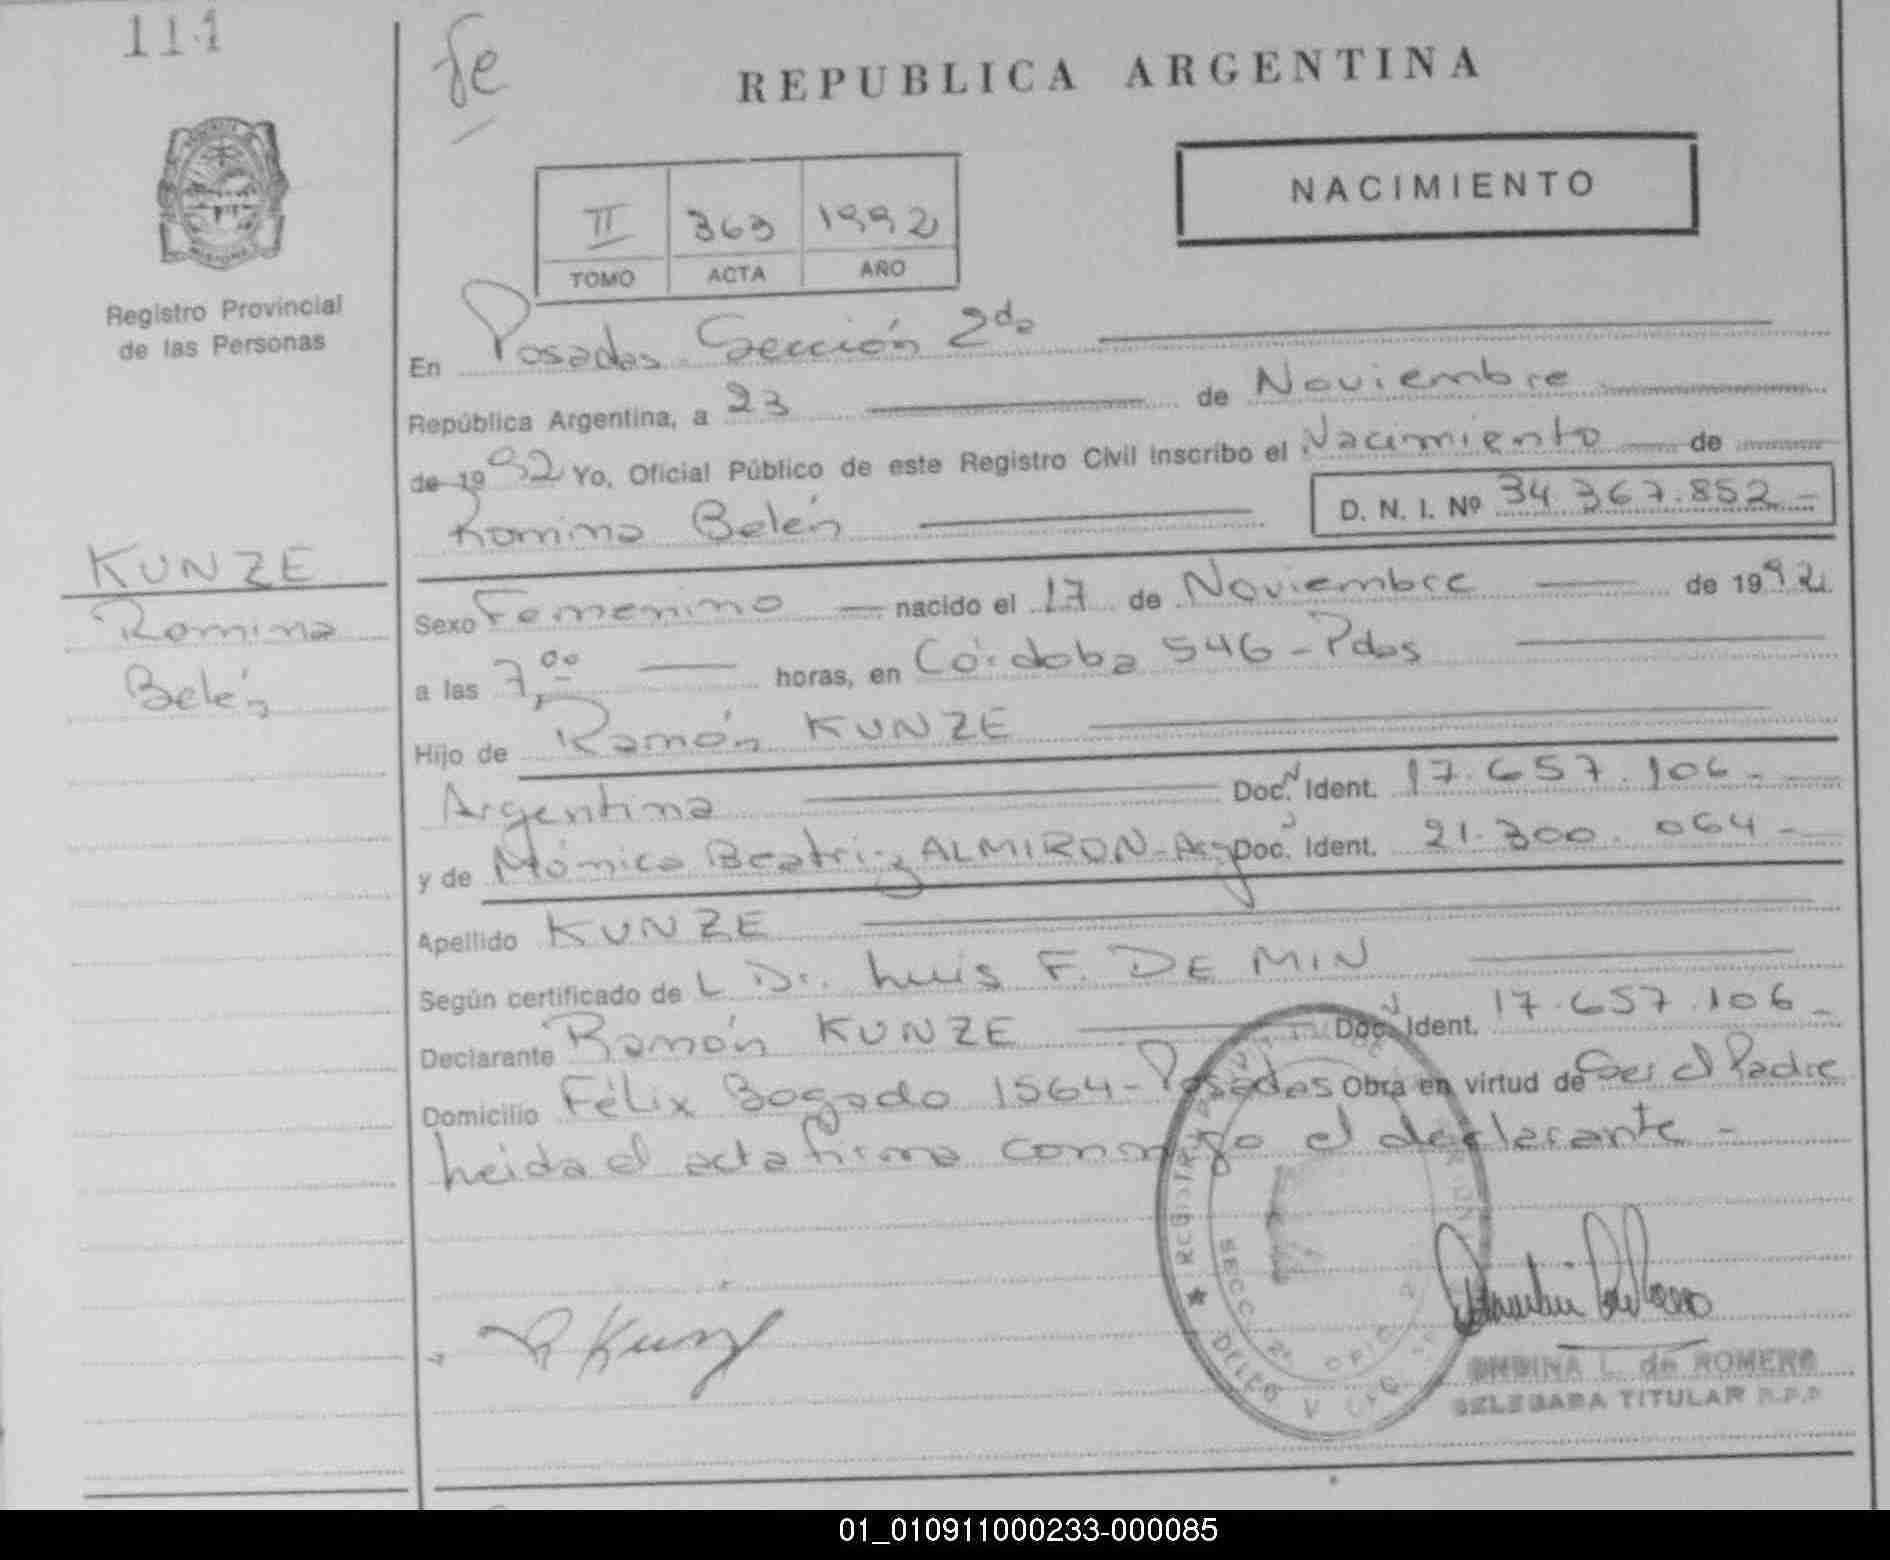 111
fe
REPUBLICA ARGENTINA
NACIMIENTO
II 363 1992
TOMO ACTA AÑO
Registro Provincial
de las Personas
En Posadas Sección 2da
República Argentina, a 23 de Noviembre
de 1992 Yo, Oficial Público de este Registro Civil inscribo el Nacimiento de
Romina Belén D. N. I. Nº 34.367.852.-
KUNZE
Romina
Belén
Sexo Femenino nacido el 17 de Noviembre de 1992
a las 7,00 horas, en Córdoba 546 - Pdas
Hijo de Ramón KUNZE
Argentina Doc. Ident. 17.657.106.-
y de Mónica Beatriz ALMIRON - Arg Doc. Ident. 21.300.064-
Apellido KUNZE
Según certificado de L Dr. Luis F. DE MIN
Declarante Ramón KUNZE Doc. Ident. 17.657.106-
Domicilio Félix Bogado 1564 - Posadas Obra en virtud de Ser el Padre
Leida el acta firma conmigo el declarante -
R Kunze
SECC. 2ª OFIC.
ONDINA L. de ROMERO
DELEGADA TITULAR R.P.P
01_010911000233-000085